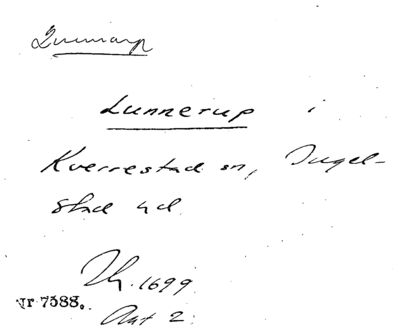 Lunnarp
Lunnerup i
Kverrestad sn, Ingel-
stad hd
Jb. 1699
nr 7588.
Ant 2.